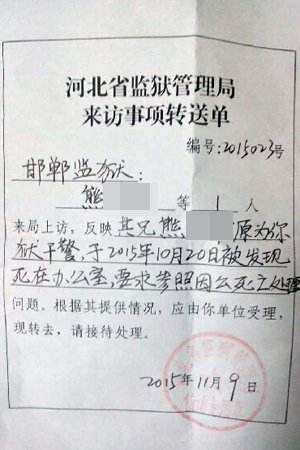 河北省监狱管理局
来访事项转送单
编号:2015023号
邯郸监狱:
熊 等 1 人
来局上访，反映 其兄熊 原为你
狱干警,于2015年10月20日被发现
死在办公室,要求参照因公死亡处理
问题。根据其提供情况，应由你单位受理,
现转去，请接待处理。
2015年11月9日